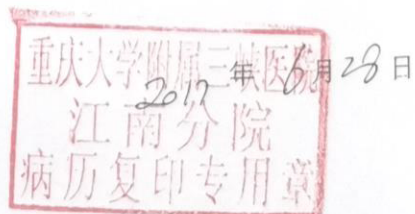 重庆大学附属三峡医院
2017年6月28日
江南分院
病历复印专用章